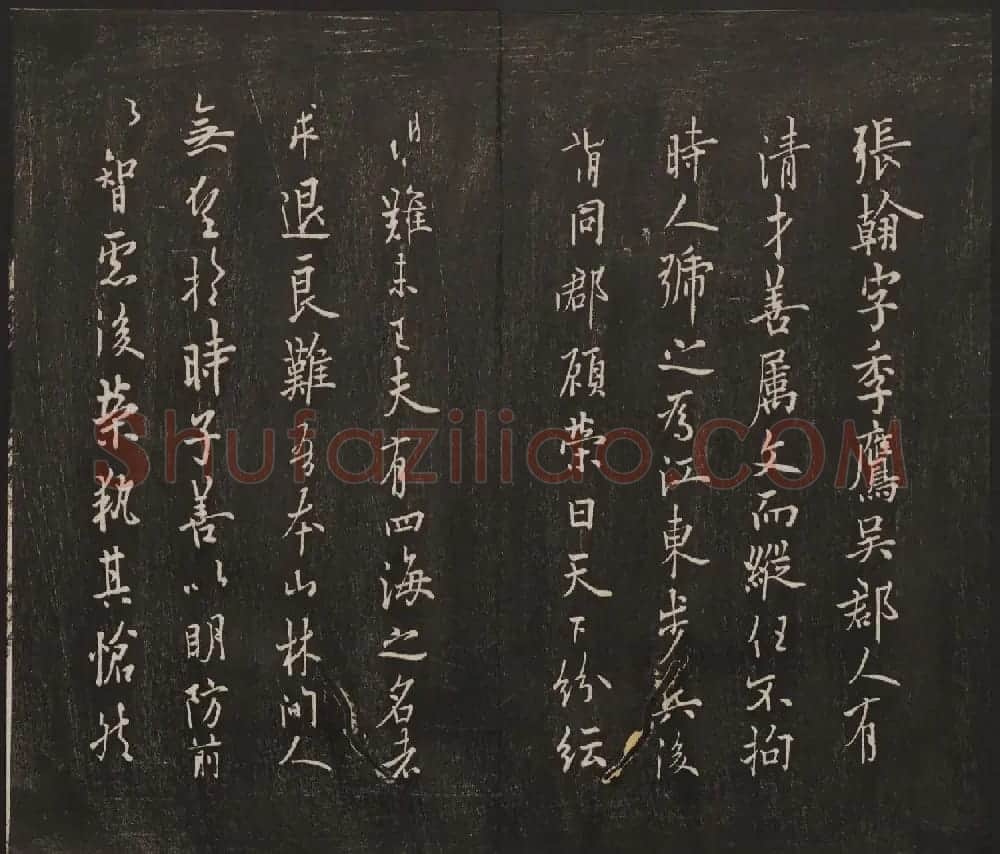 張翰字季鷹吳郡人有
清才善属文而縱任不拘
時人號之為江東步兵後
同郡顧榮曰天下紛紜
難未已夫有四海之名者
求退良難吾本山林間人
無望於時子善以明防前
以智慮後榮執其愴然
Shufaziliao.COM